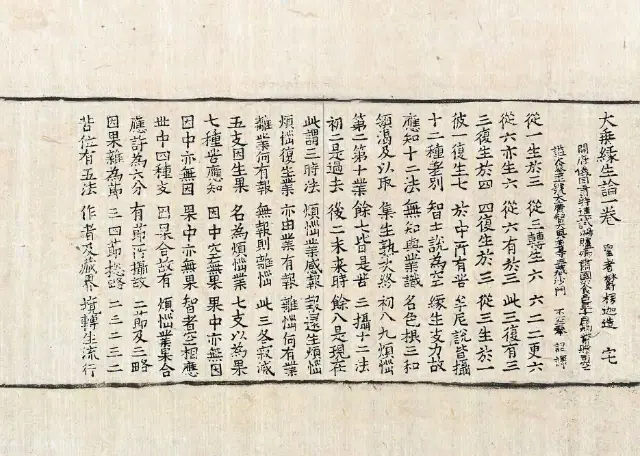 大乘緣生論一卷 聖者欝楞迦造 宅
開府儀同三司特進試鴻臚卿肅國公食邑三千戶賜紫贈司空
謚大號大廣智大興善寺三藏沙門 不空奉 詔譯
從一生於三 從三轉生六 六二二更六
從六亦生六 從六有於三 此三復有三
三復生於四 四復生於三 從三生於一
彼一復生七 於中所有苦 牟尼說皆攝
十二種差別 智士說為空 緣生支力故
應知十二法 無知與業識 名色根三和
領渴及以取 集生熟次終 初八九煩惱
第二第十業 餘七皆是苦 三攝十二法
初二是過去 後二未來時 餘八是現在
此謂三時法 煩惱業感報 報還生煩惱
煩惱復生業 亦由業有報 離惱何有業
離業何有報 無報則離惱 此三各寂滅
五支因生果 名為煩惱業 七支以為果
七種苦應知 因中空無果 果中亦無因
因中亦無因 果中亦無果 智者空相應
世中四種支 因果合故有 煩惱業果合
應許為六分 有節所攝故 二節及三略
因果雜為節 三四節揔略 二三二三二
苦位有五法 作者及藏界 境轉生流行